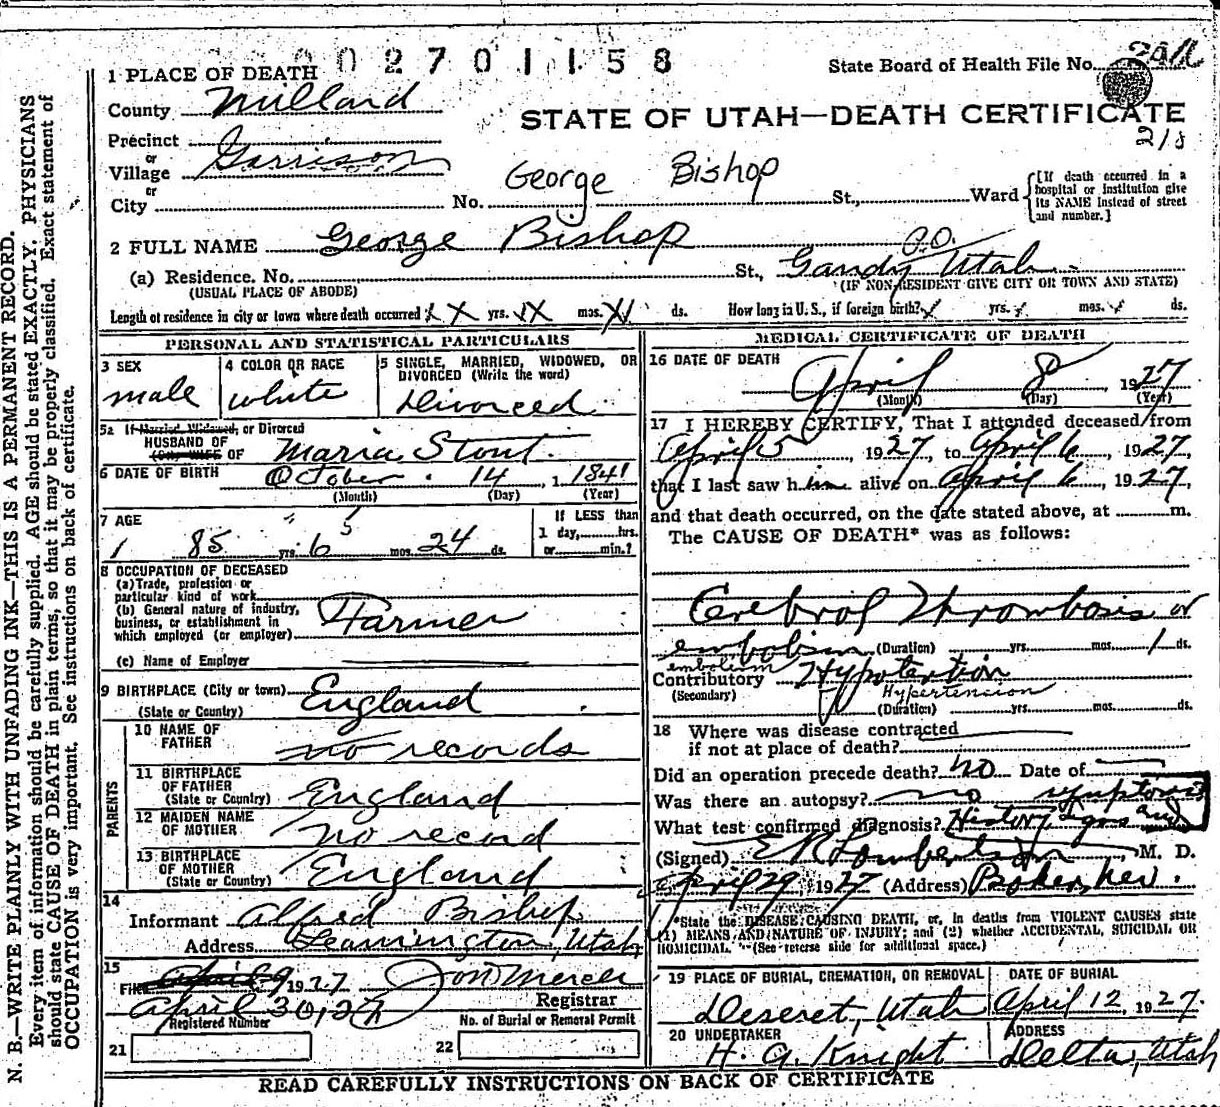 002701158
State Board of Health File No.
1 PLACE OF DEATH
County Millard
STATE OF UTAH—DEATH CERTIFICATE
218
Precinct
or
Village Garrison
or
City No. George Bishop St., Ward
[If death occurred in a hospital or institution give its NAME instead of street and number.]
2 FULL NAME George Bishop
(a) Residence. No. St., Gandy Utah
(USUAL PLACE OF ABODE) (IF NON-RESIDENT GIVE CITY OR TOWN AND STATE)
Length of residence in city or town where death occurred X X yrs. XX mos. X ds. How long in U. S., if foreign birth? yrs. mos. ds.
PERSONAL AND STATISTICAL PARTICULARS
3 SEX male
4 COLOR OR RACE white
5 SINGLE, MARRIED, WIDOWED, OR DIVORCED (Write the word) Divorced
5a If Married, Widowed, or Divorced
HUSBAND OF
(or) WIFE OF Maria Stout
6 DATE OF BIRTH October 14 1841
(Month) (Day) (Year)
7 AGE 5
85 yrs. 6 mos. 24 ds.
If LESS than 1 day, hrs. or min.?
8 OCCUPATION OF DECEASED
(a) Trade, profession or particular kind of work
(b) General nature of industry, business, or establishment in which employed (or employer) Farmer
(c) Name of Employer
9 BIRTHPLACE (City or town) England
(State or Country)
PARENTS
10 NAME OF FATHER no records
11 BIRTHPLACE OF FATHER (State or Country) England
12 MAIDEN NAME OF MOTHER no record
13 BIRTHPLACE OF MOTHER (State or Country) England
14 Informant Alfred Bishop
Address Leamington, Utah
15 Filed April 9 1927
April 30, 27 Registrar
Registered Number No. of Burial or Removal Permit
21 22
MEDICAL CERTIFICATE OF DEATH
16 DATE OF DEATH April 8, 1927
(Month) (Day) (Year)
17 I HEREBY CERTIFY, That I attended deceased from
April 5, 1927, to April 6, 1927,
that I last saw him alive on April 6, 1927,
and that death occurred, on the date stated above, at m.
The CAUSE OF DEATH* was as follows:
Cerebral Thrombosis or
embolism (Duration) yrs. mos. 1 ds.
embolism
Contributory Hypertention
(Secondary) Hypertension
(Duration) yrs. mos. ds.
18 Where was disease contracted
if not at place of death?
Did an operation precede death? no Date of
Was there an autopsy? no symptoms
What test confirmed diagnosis? History and
(Signed) M. D.
April 29, 1927 (Address) Baker, Nev.
*State the DISEASE CAUSING DEATH, or, in deaths from VIOLENT CAUSES state
(1) MEANS AND NATURE OF INJURY; and (2) whether ACCIDENTAL, SUICIDAL OR
HOMICIDAL. (See reverse side for additional space.)
19 PLACE OF BURIAL, CREMATION, OR REMOVAL Deseret, Utah
DATE OF BURIAL April 12, 1927
20 UNDERTAKER H. G. Knight
ADDRESS Delta, Utah
READ CAREFULLY INSTRUCTIONS ON BACK OF CERTIFICATE
N. B.—WRITE PLAINLY WITH UNFADING INK—THIS IS A PERMANENT RECORD.
Every item of information should be carefully supplied. AGE should be stated EXACTLY. PHYSICIANS
should state CAUSE OF DEATH in plain terms, so that it may be properly classified. Exact statement of
OCCUPATION is very important. See instructions on back of certificate.